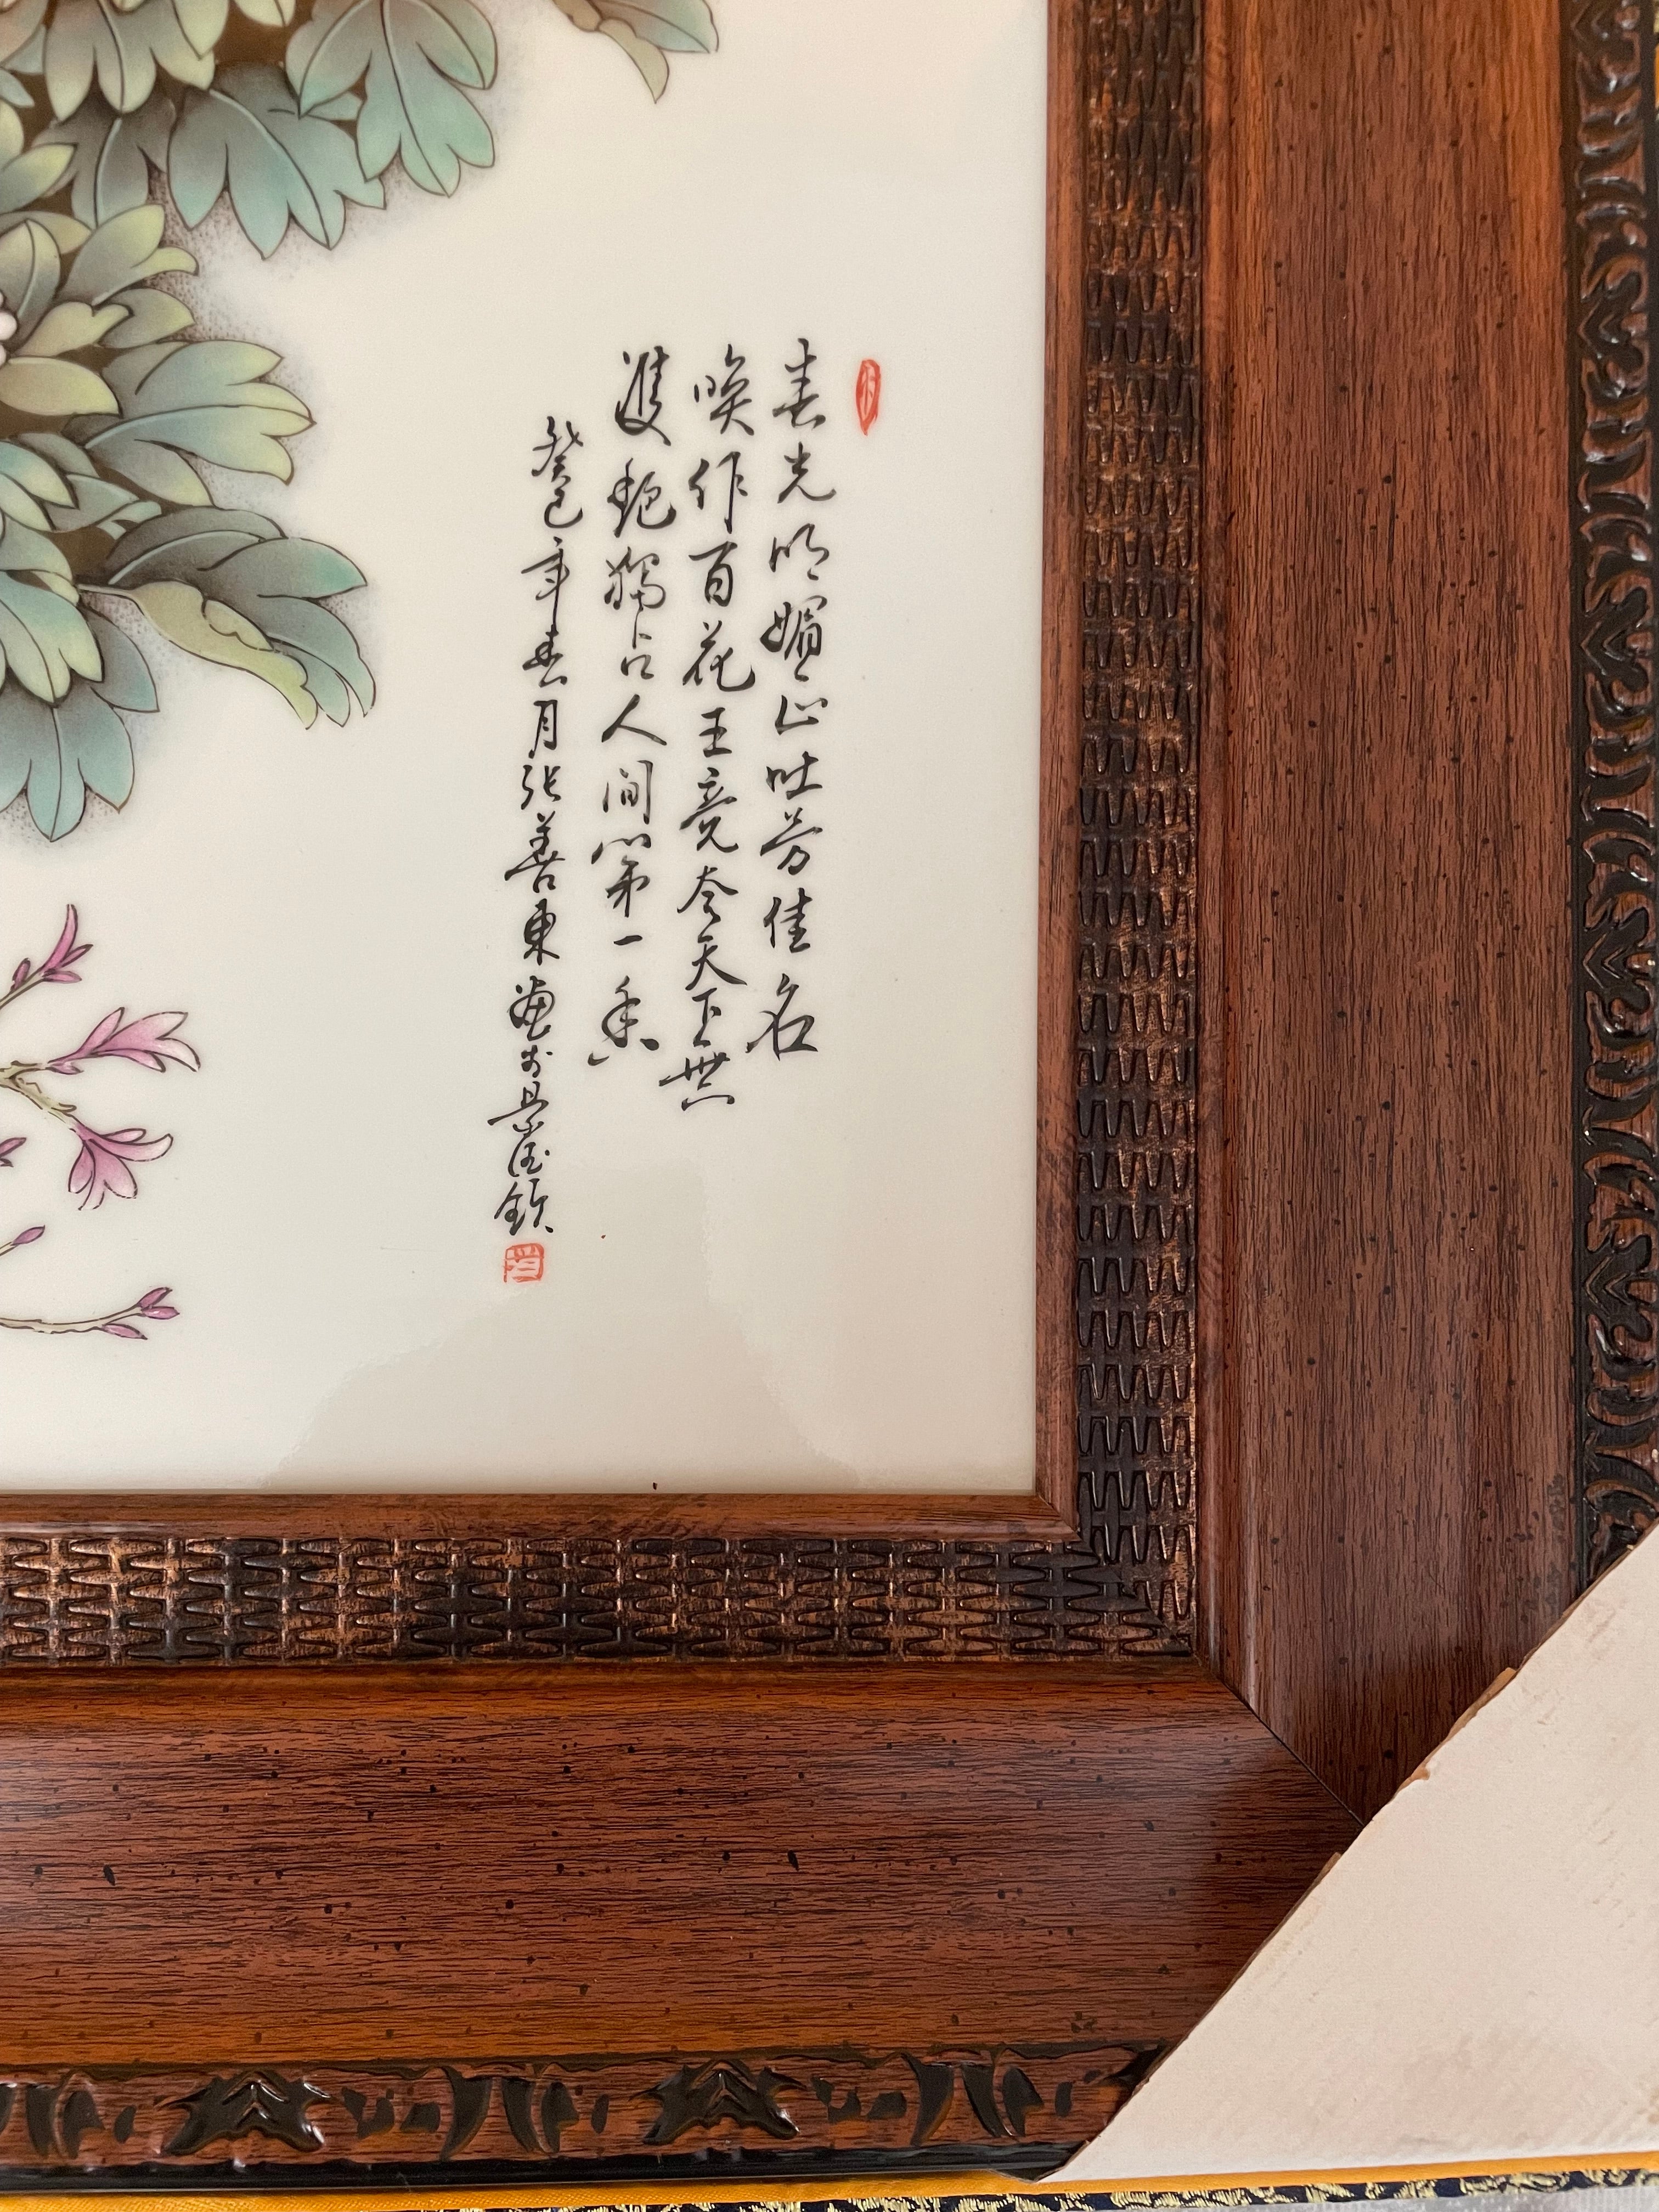 春光明媚正吐芳佳名
唤作百花王竞夸天下無
雙艳獨占人间第一香
癸巳年春月张善東画於景德镇